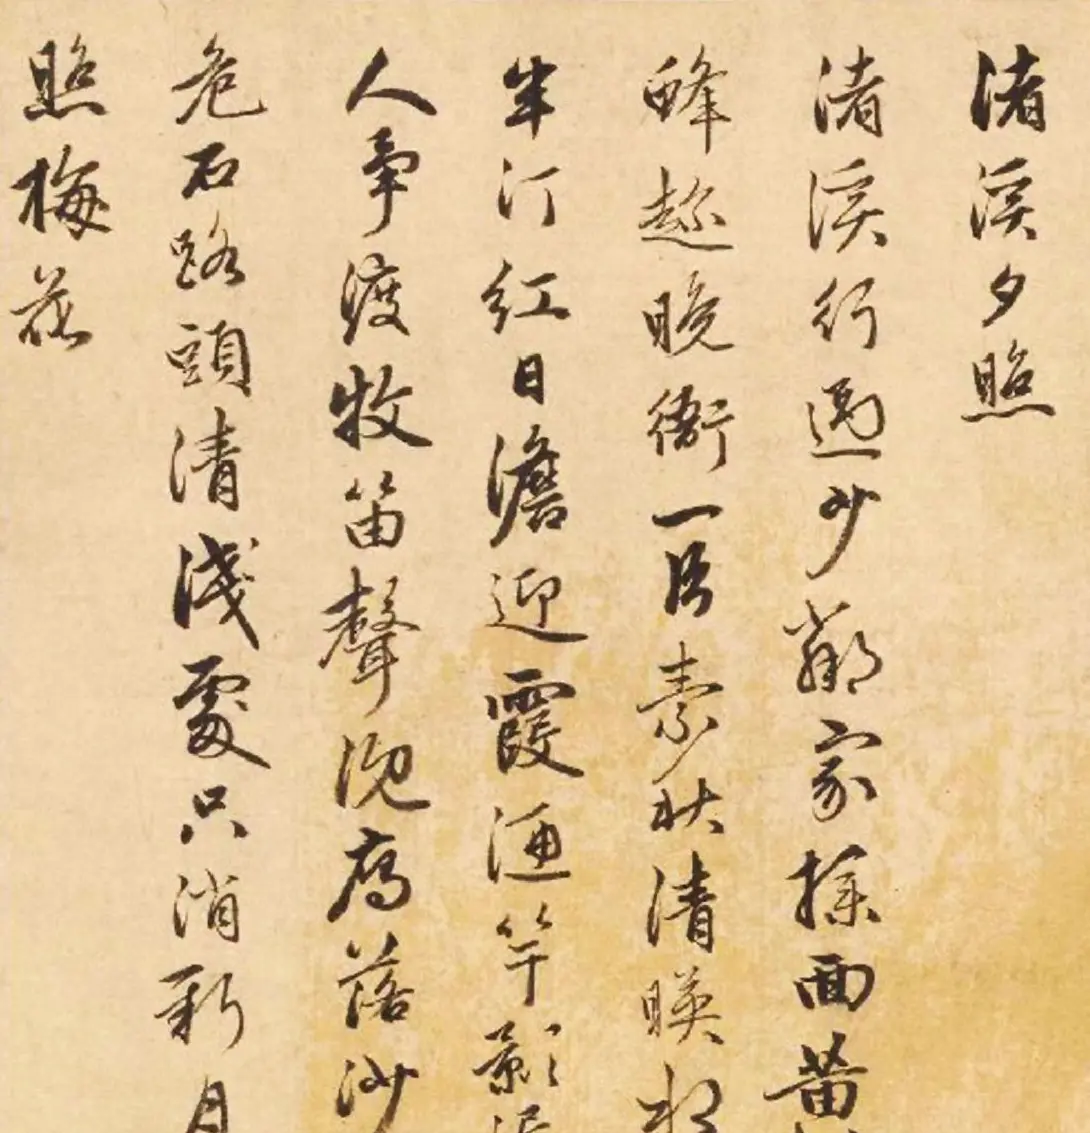 渚溪夕照
渚溪行過少鄰家撲面黃
蜂趂晚衙一段素秋清暎
半汀紅日澹迎霞漁竿影
人爭渡牧笛聲沈雁落沙
危石路頭清淺處只消新月
照梅花